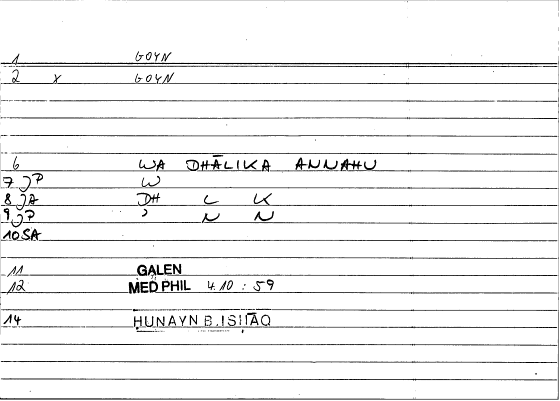 1 GOYN
2 x GOYN
6 WA DHĀLIKA ANNAHU
7 JP W
8 JA DH L K
9 JP ʾ N N
10 SA
11 GALEN
12 MED PHIL 4.10 : 59
14 HUNAYN B. ISḤĀQ